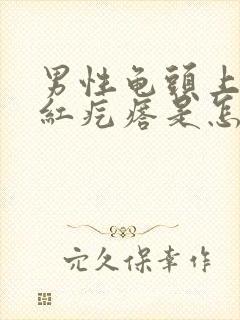 男性龟頭上
紅疙瘩是怎
穴久保幸作